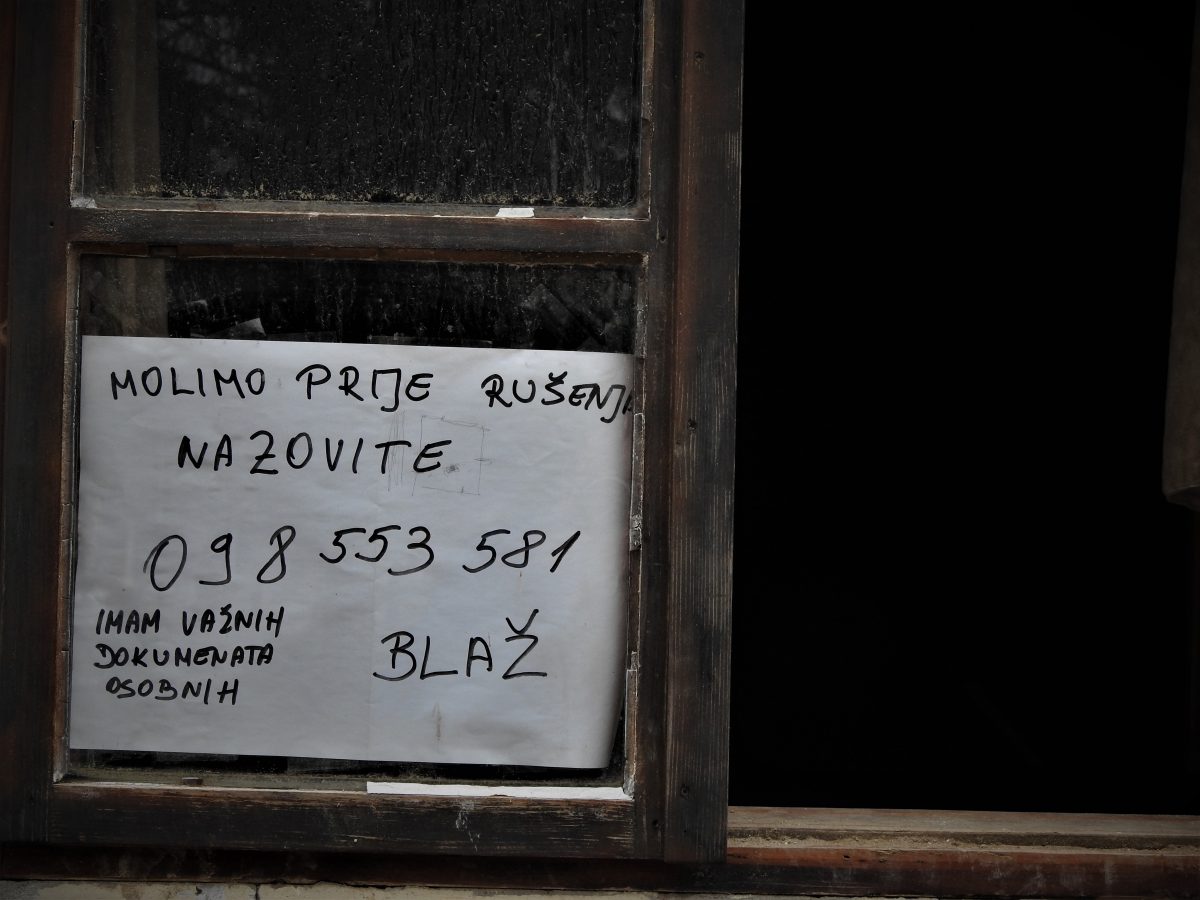 MOLIMO PRIJE RUŠENJA
NAZOVITE
098 553 581
IMAM VAŽNIH
DOKUMENATA
OSOBNIH
BLAŽ